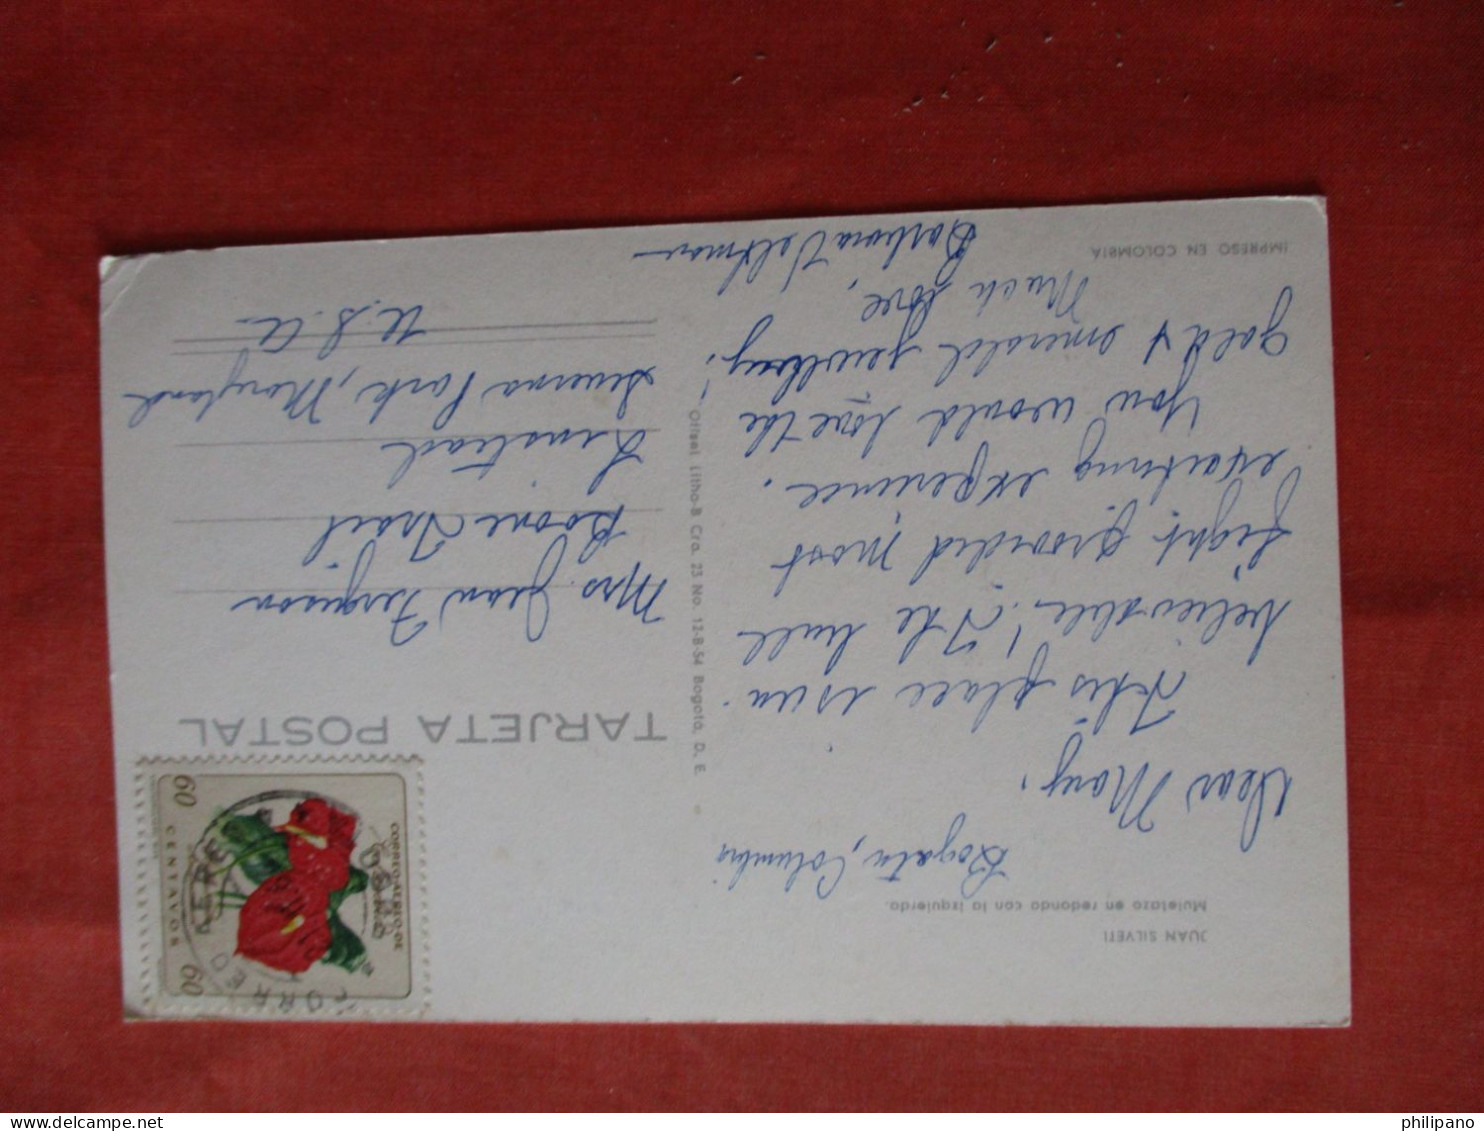 JUAN SILVETI
Muletazo en redondo con la izquierda.
Bogata, Columbia
Dear Mary,
This place is un-
believable! The bull
fight provided most
exciting experience.
You would love the
gold & emerald jewelry!
Much love,
Barbara
IMPRESO EN COLOMBIA
Offset Litho-B Cra. 23 No. 12-B-54 Bogotá, D. E.
TARJETA POSTAL
Mrs Jean Ferguson
Boone Trail
Linstead
Severna Park, Maryland
U.S.A.
CORREO AEREO DE
60
CENTAVOS
60
philipano